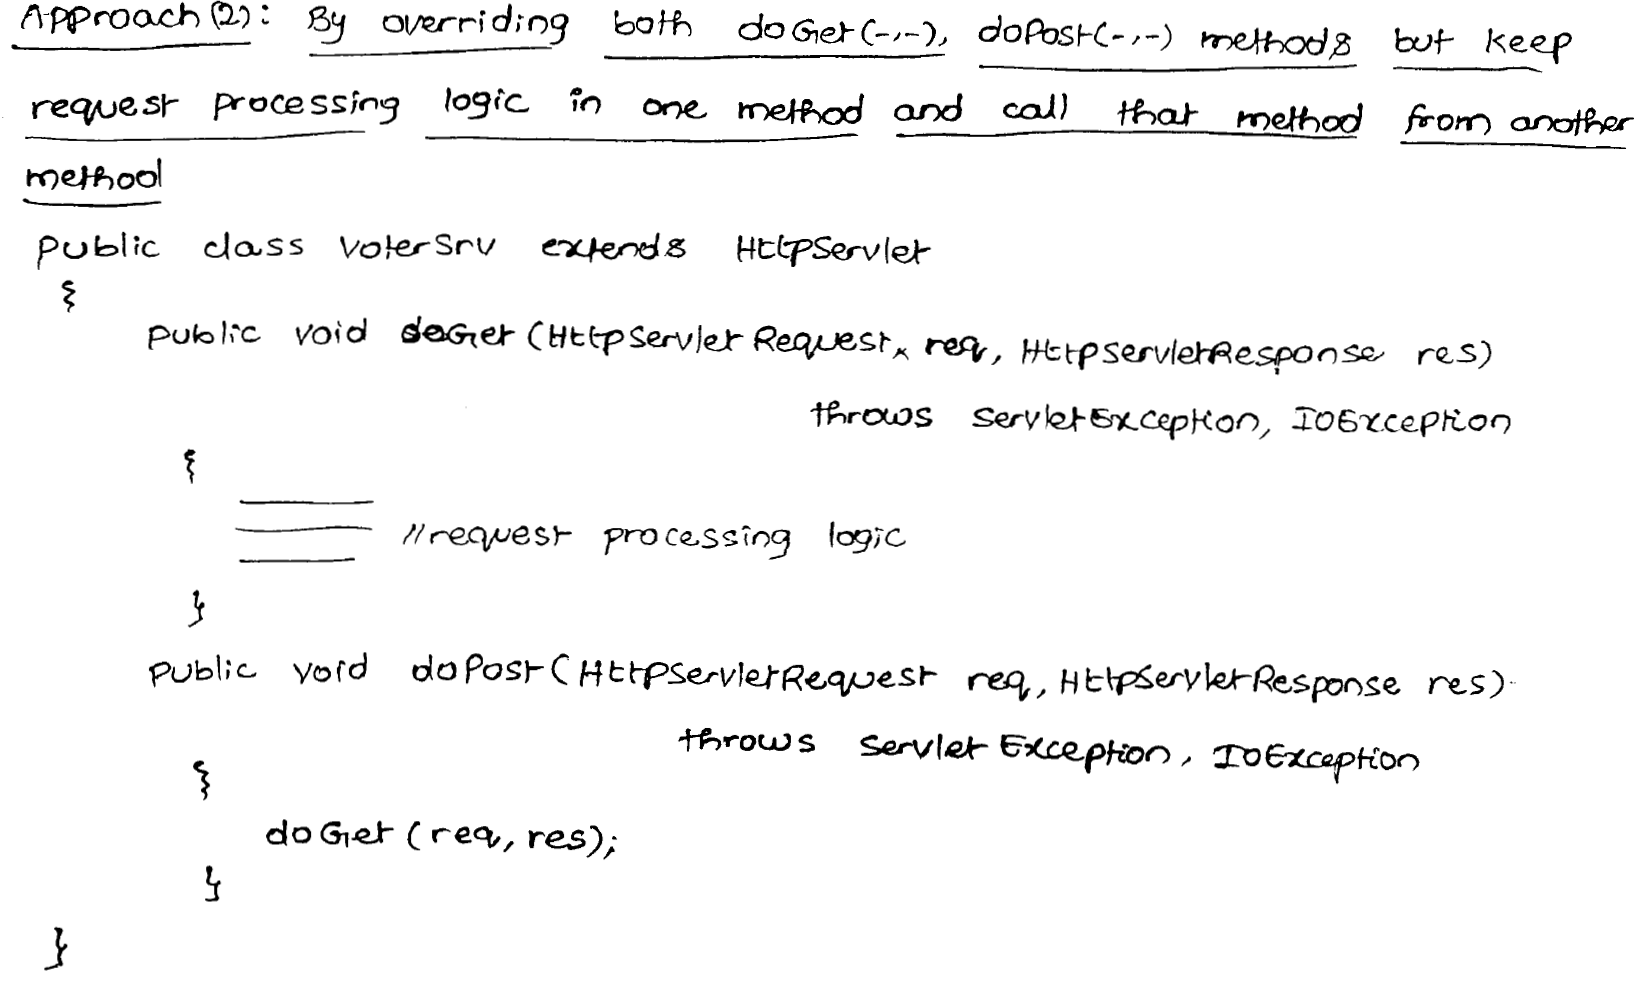 Approach(2): By overriding both doGet(-,-), doPost(-,-) methods but keep
request processing logic in one method and call that method from another
method
public class VoterSrv extends HttpServlet
{
public void doGet (HttpServletRequest req, HttpServletResponse res)
throws ServletException, IOException
{
//request processing logic
}
public void doPost(HttpServletRequest req, HttpServletResponse res)
throws Servlet Exception, IOException
{
doGet (req, res);
}
}